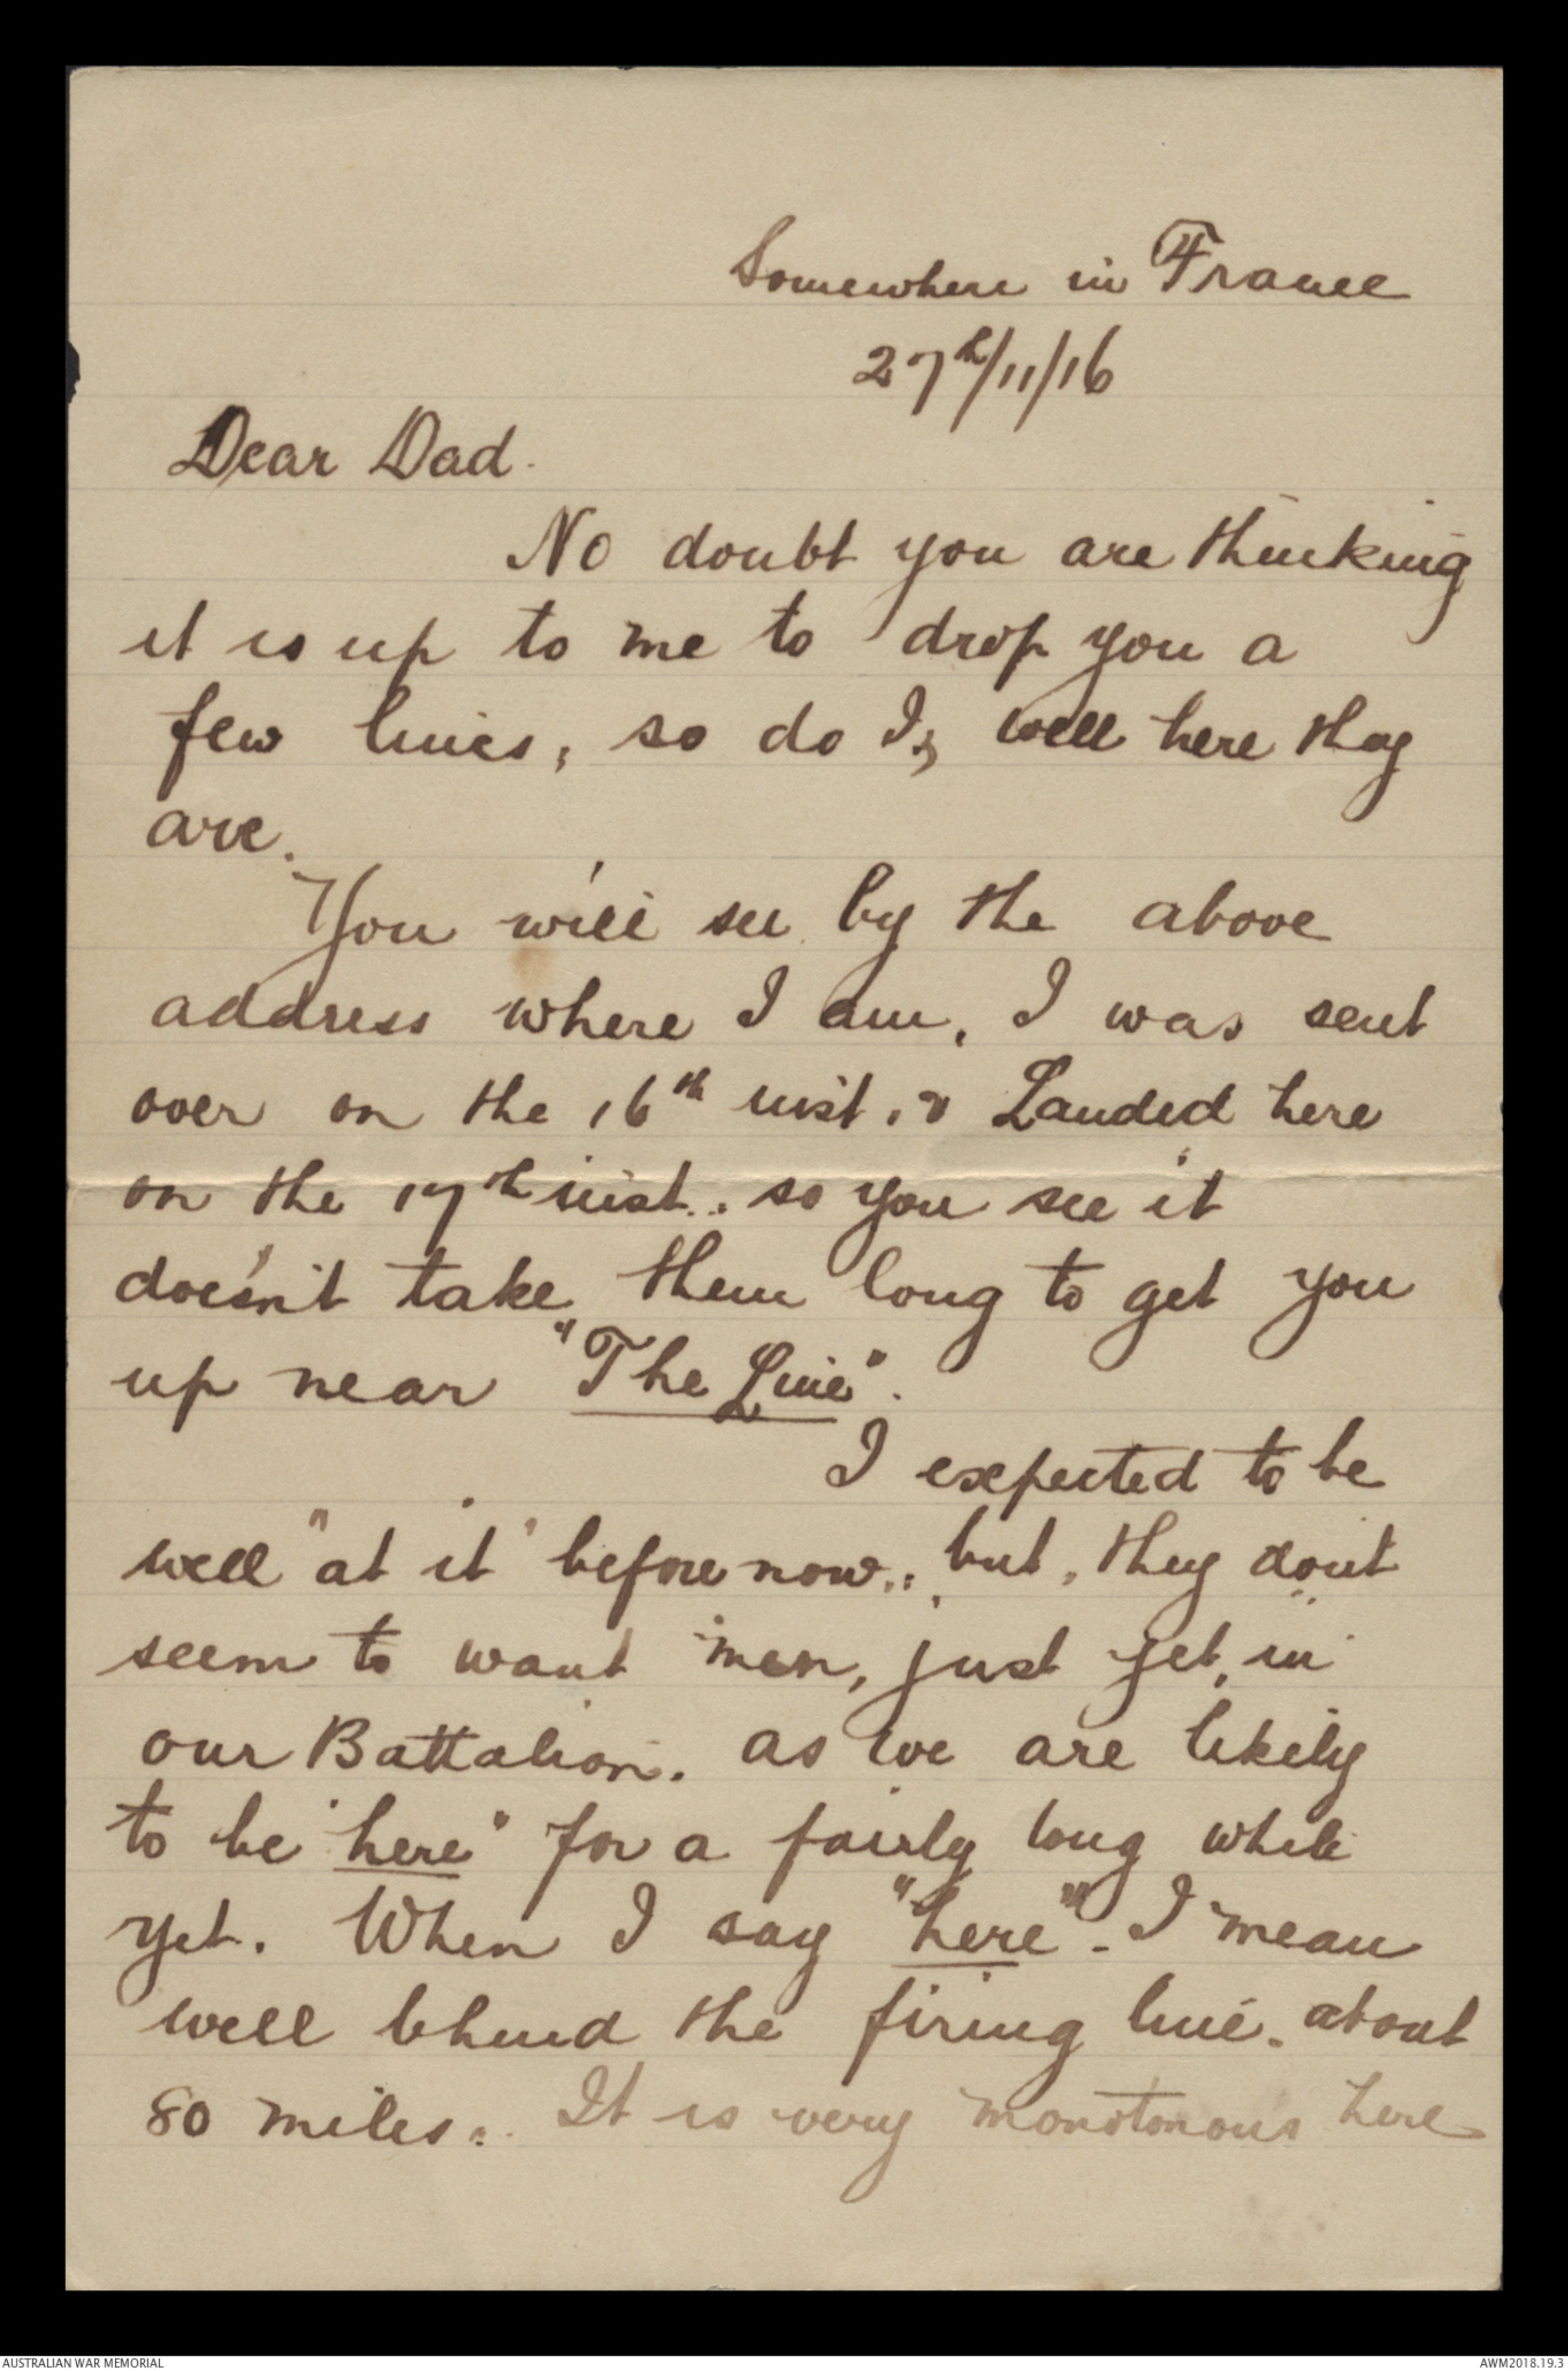 Somewhere in France
27th/11/16
Dear Dad.
No doubt you are thinking
it is up to me to drop you a
few lines, so do I, well here they
are.
You will see by the above
address where I am, I was sent
over on the 16th inst, & Landed here
on the 17th inst.. so you see it
doesn't take them long to get you
up near "The Line".
I expected to be
well "at it" before now.. but, they don't
seem to want men, just yet, in
our Battalion. as we are likely
to be "here" for a fairly long while
yet. When I say "here" - I mean
well behind the firing line. about
80 miles. It is very monotonous here
AUSTRALIAN WAR MEMORIAL
AWM2018.19.3